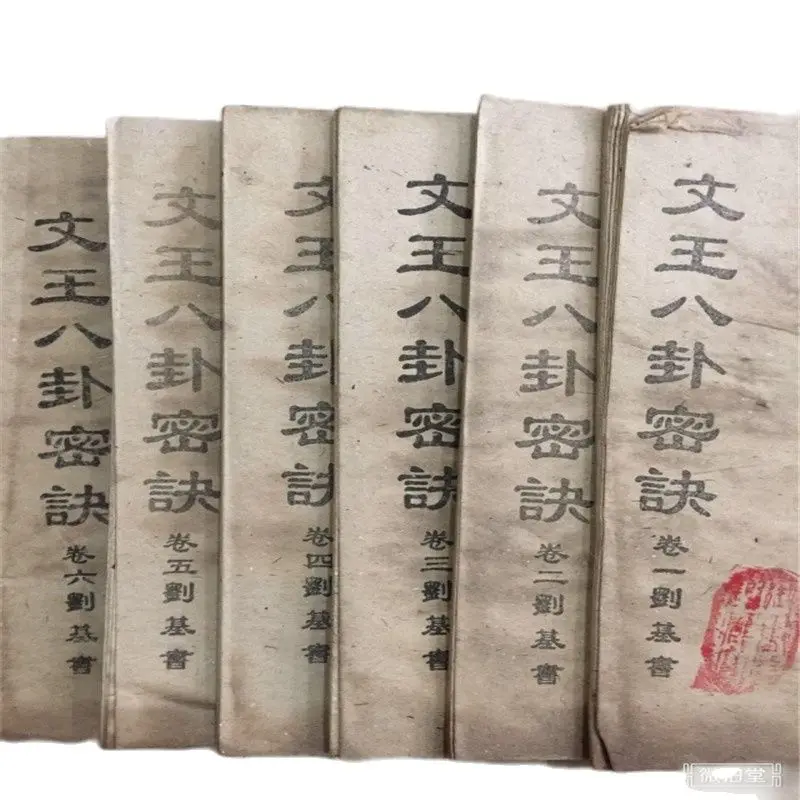 文王八卦密訣
卷一劉基書
文王八卦密訣
卷二劉基書
文王八卦密訣
卷三劉基書
文王八卦密訣
卷四劉基書
文王八卦密訣
卷五劉基書
文王八卦密訣
卷六劉基書